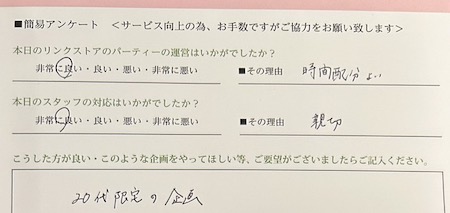 ■簡易アンケート <サービス向上の為、お手数ですがご協力をお願い致します>
本日のリンクストアのパーティーの運営はいかがでしたか？
非常に良い・良い・悪い・非常に悪い ■その理由 時間配分よい
本日のスタッフの対応はいかがでしたか？
非常に良い・良い・悪い・非常に悪い ■その理由 親切
こうした方が良い・このような企画をやってほしい等、ご要望がございましたらご記入ください。
20代限定の企画